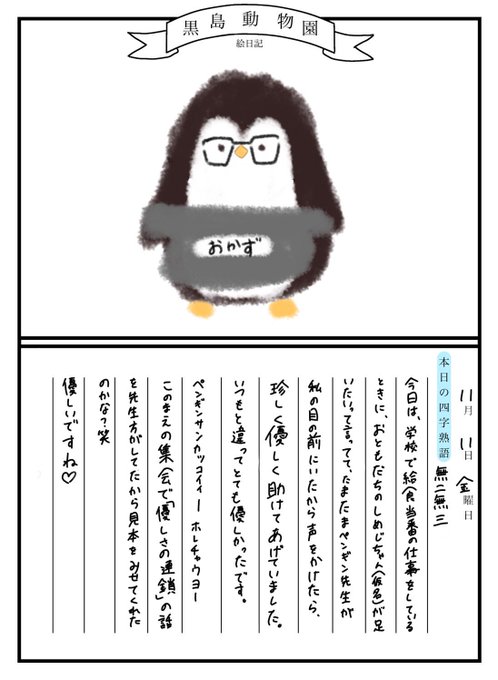 黒島動物園
絵日記
おかず
11月11日金曜日
本日の四字熟語 無二無三
今日は、学校で給食当番の仕事をしている
ときに、おともだちのしめじちゃん(仮名)が足
いたいって言ってて、たまたまペンギン先生が
私の目の前にいたから声をかけたら、
珍しく優しく助けてあげていました。
いつもと違ってとても優しかったです。
ペンギンサンカッコイィー ホレチャウヨー
このまえの集会で「優しさの連鎖」の話
を先生方がしてたから見本をみせてくれた
のかな?笑
優しいですね♡